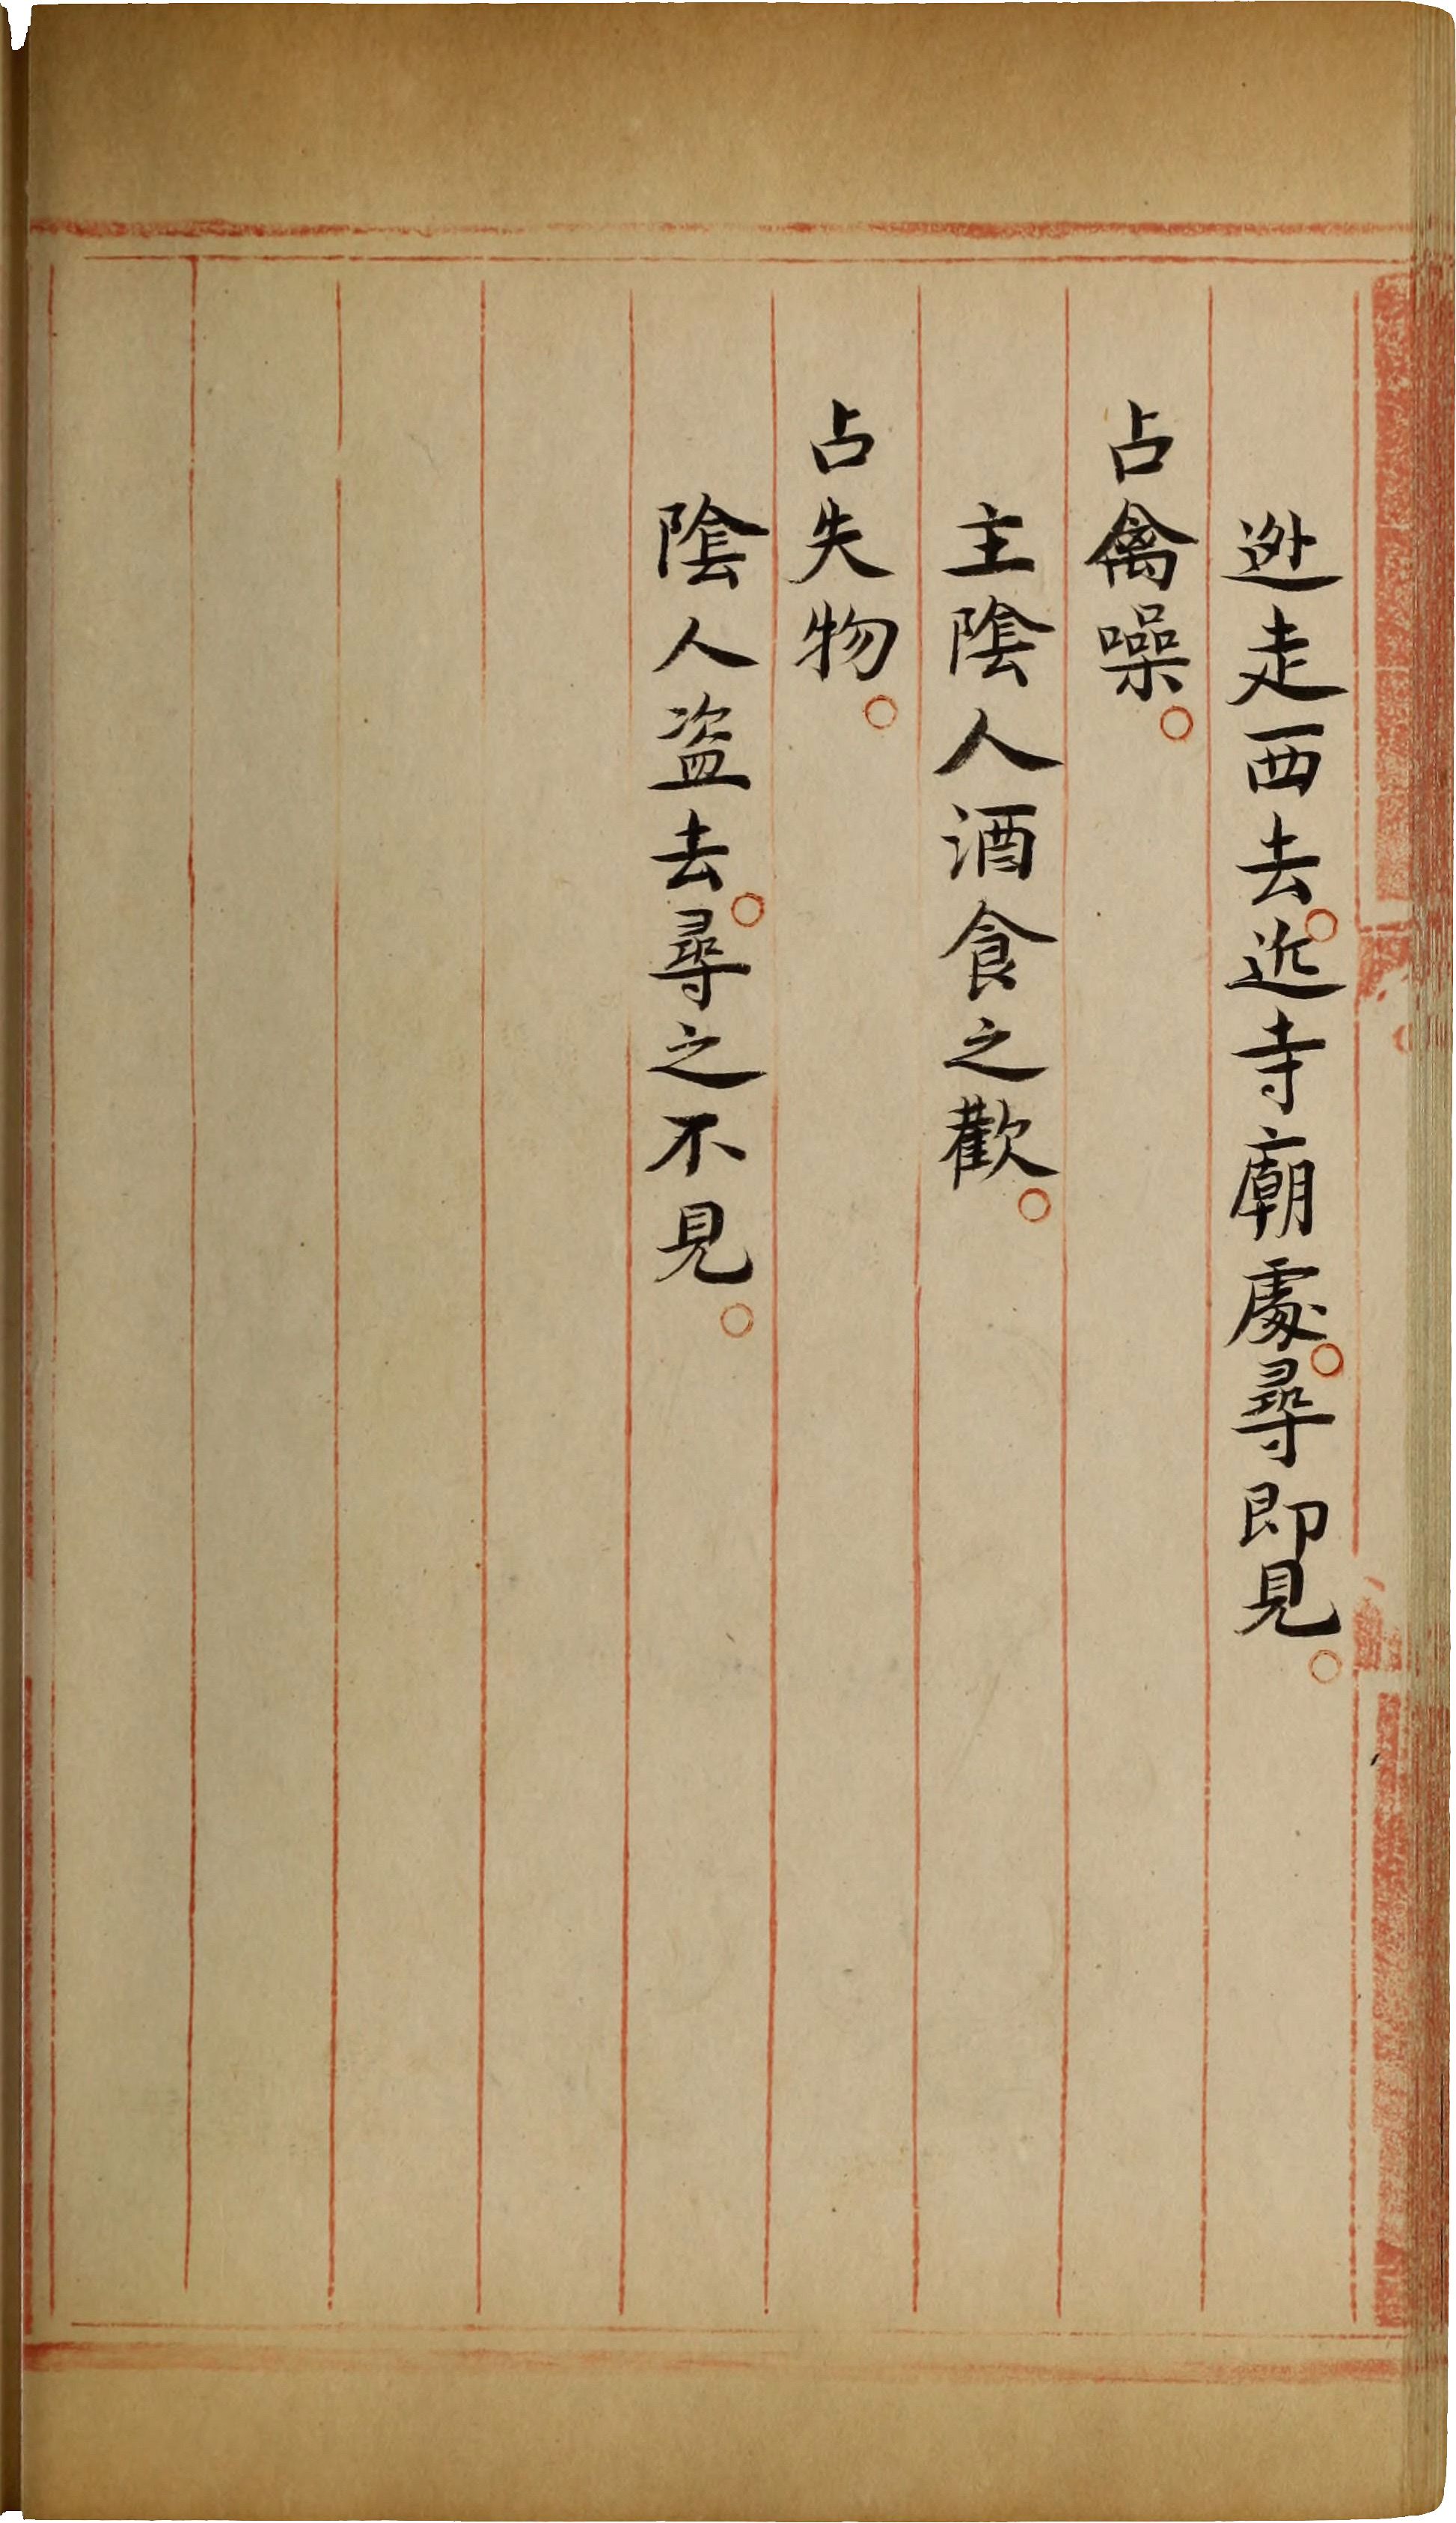 逃走西去。近寺廟處。尋即見。
占禽噪。
主隂人酒食之歡。
占失物。
隂人盗去。尋之不見。